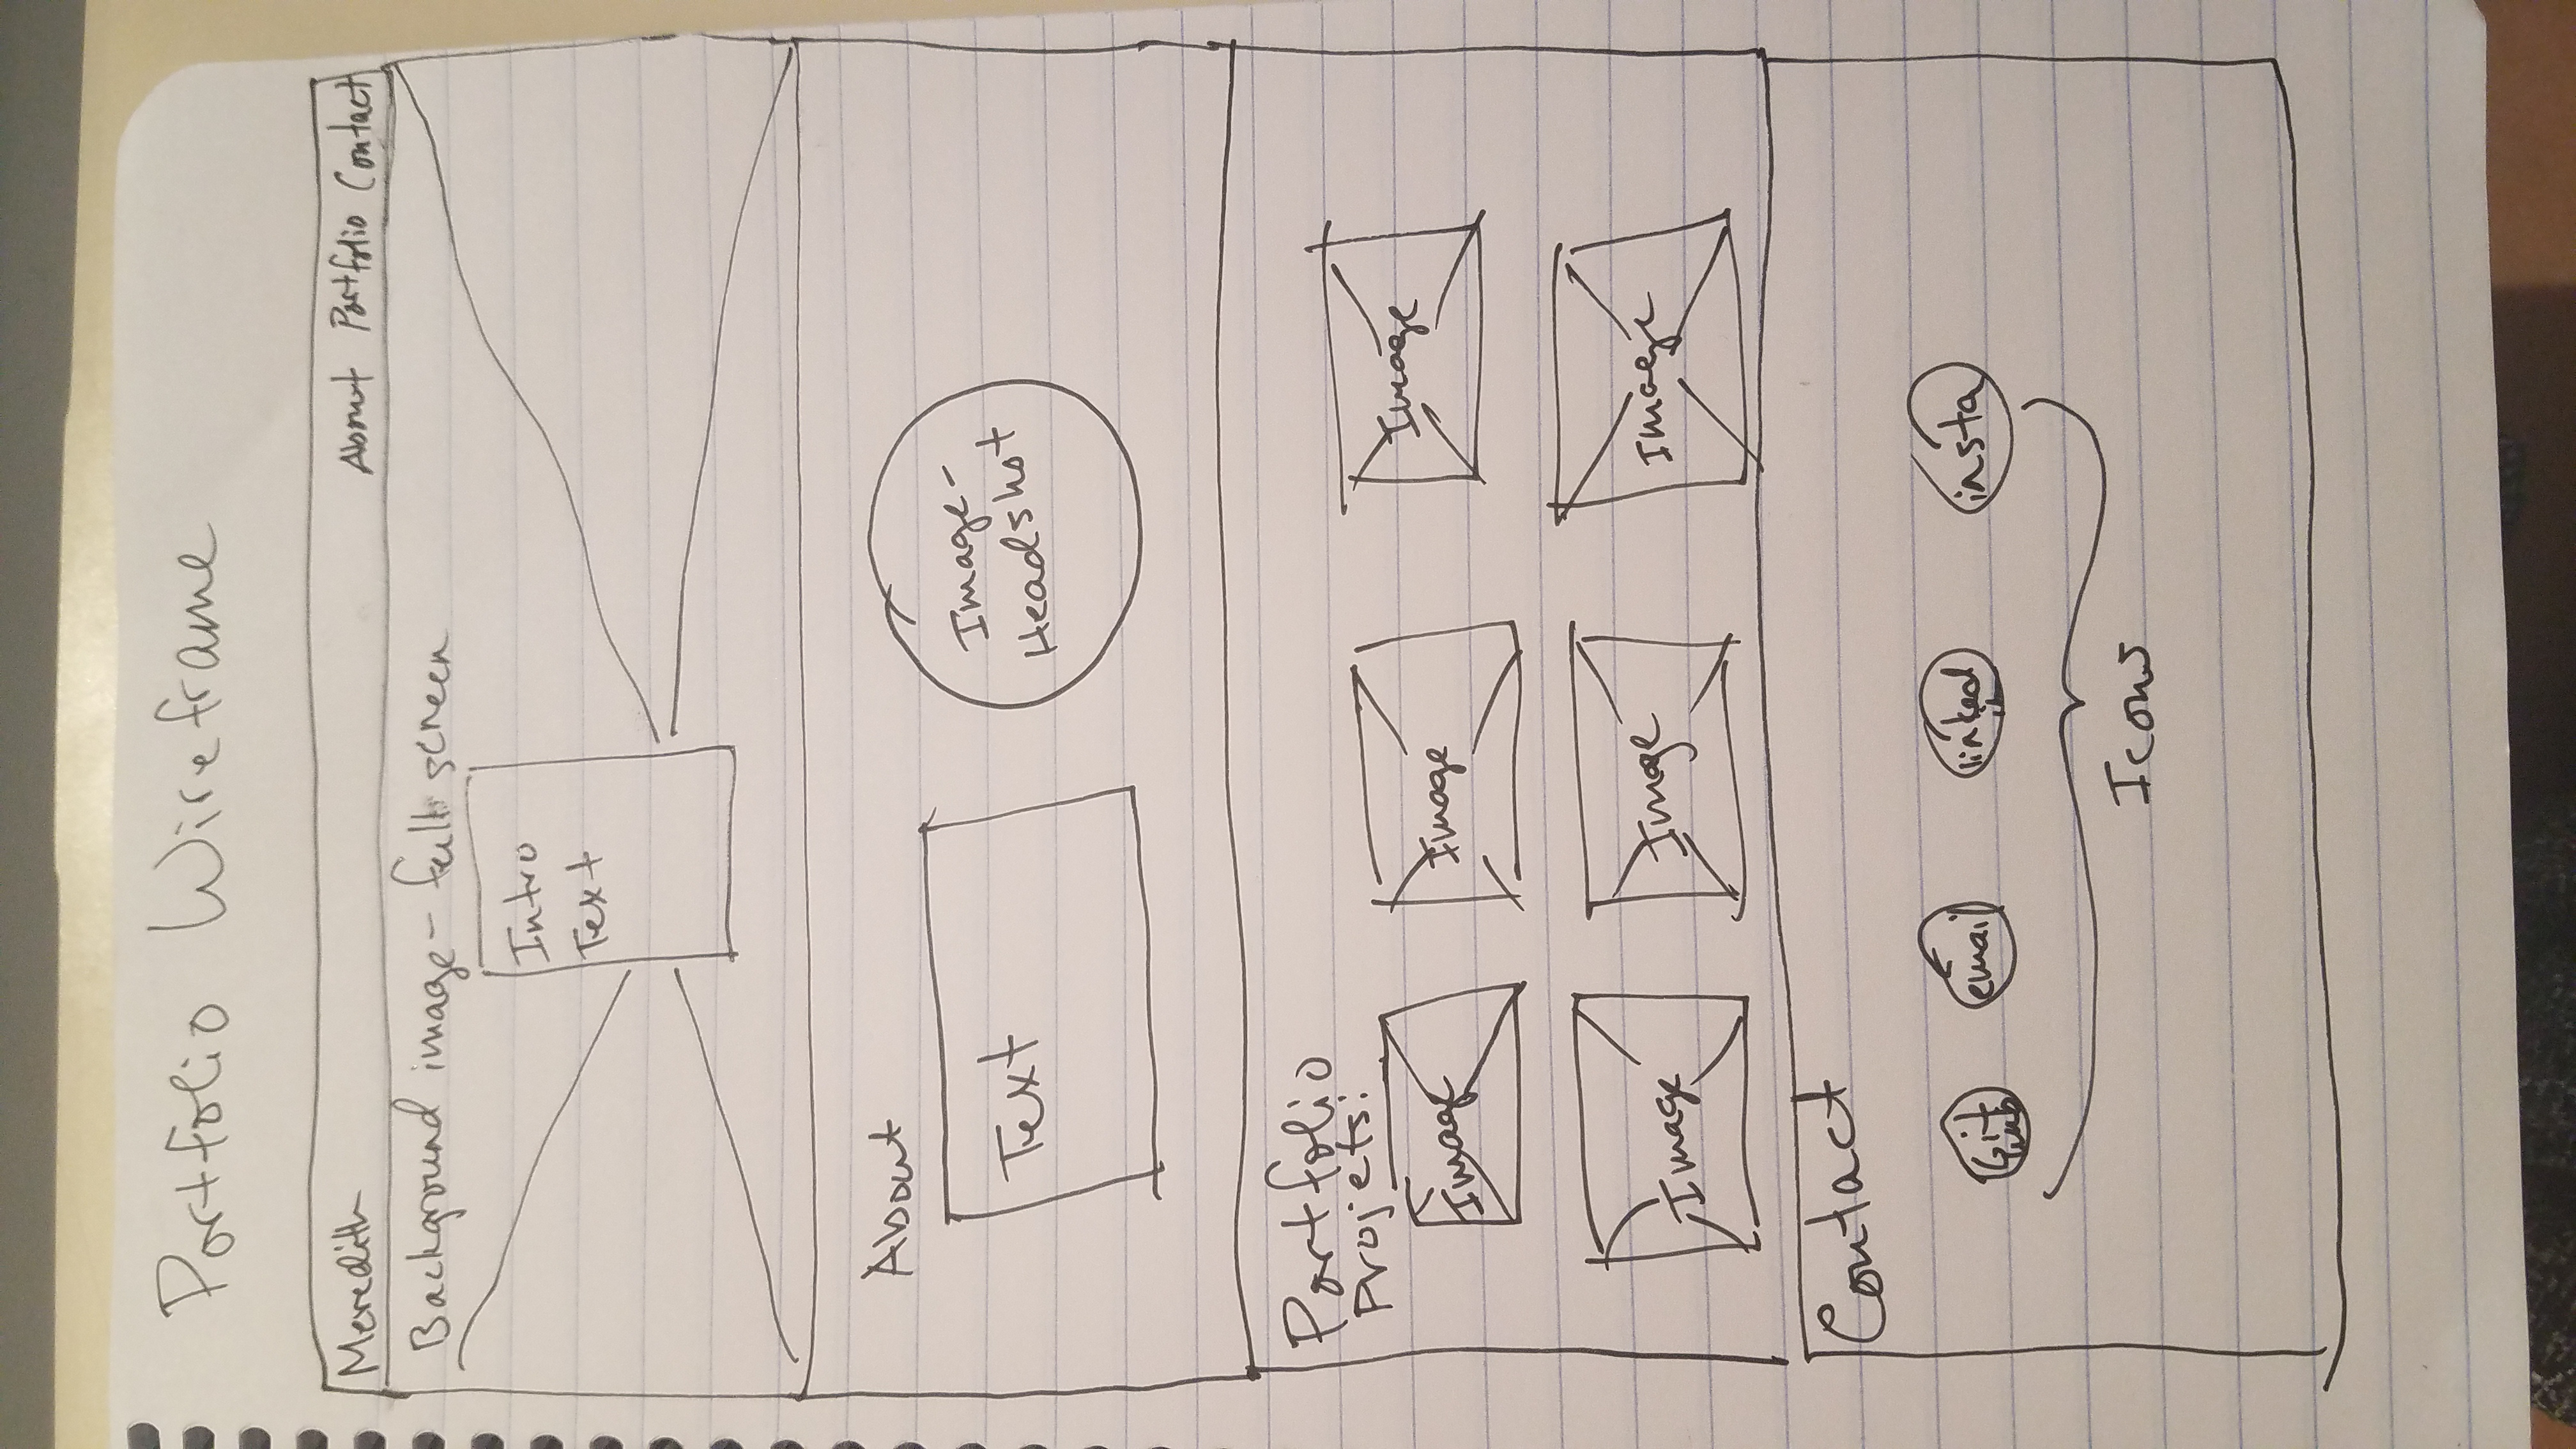 Portfolio Wireframe
Meredith
About Portfolio Contact
Background image - full screen
Intro
Text
About
Text
Image -
Headshot
Portfolio
Projets:
Image
Image
Image
Image
Image
Image
Contact
Git
hub
email
linked
in
insta
Icons